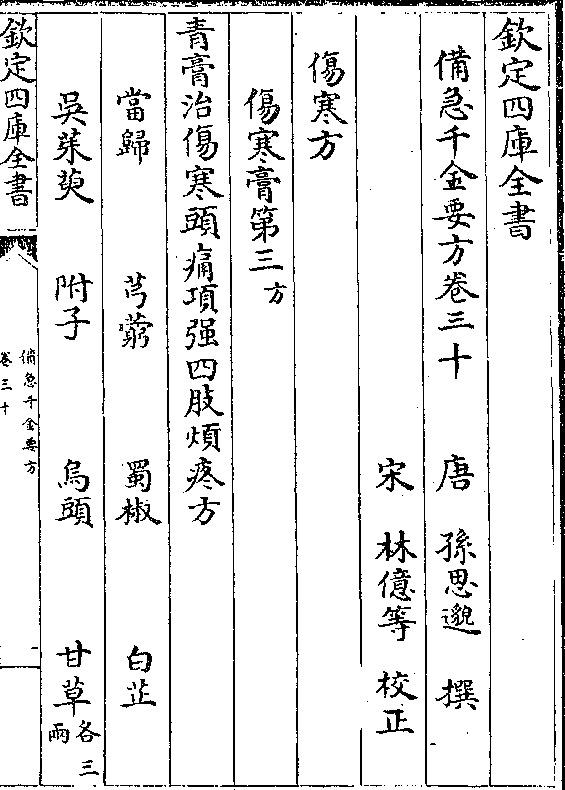 欽定四庫全書
備急千金要方卷三十
唐 孫思邈 撰
宋 林億等 校正
傷寒方
傷寒膏第三方
青膏治傷寒頭痛項强四肢煩疼方
當歸 芎藭 蜀椒 白芷
吳茱萸 附子 烏頭 甘草各三兩
欽定四庫全書
備急千金要方
卷三十
一